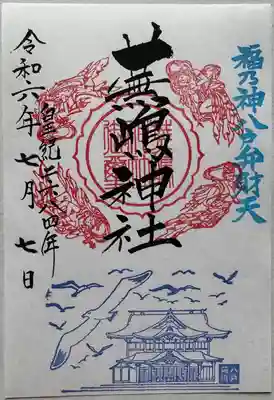 福乃神八戸弁財天
蕪嶋神社
皇紀二六八四年
令和六年 七月 七日
八戸